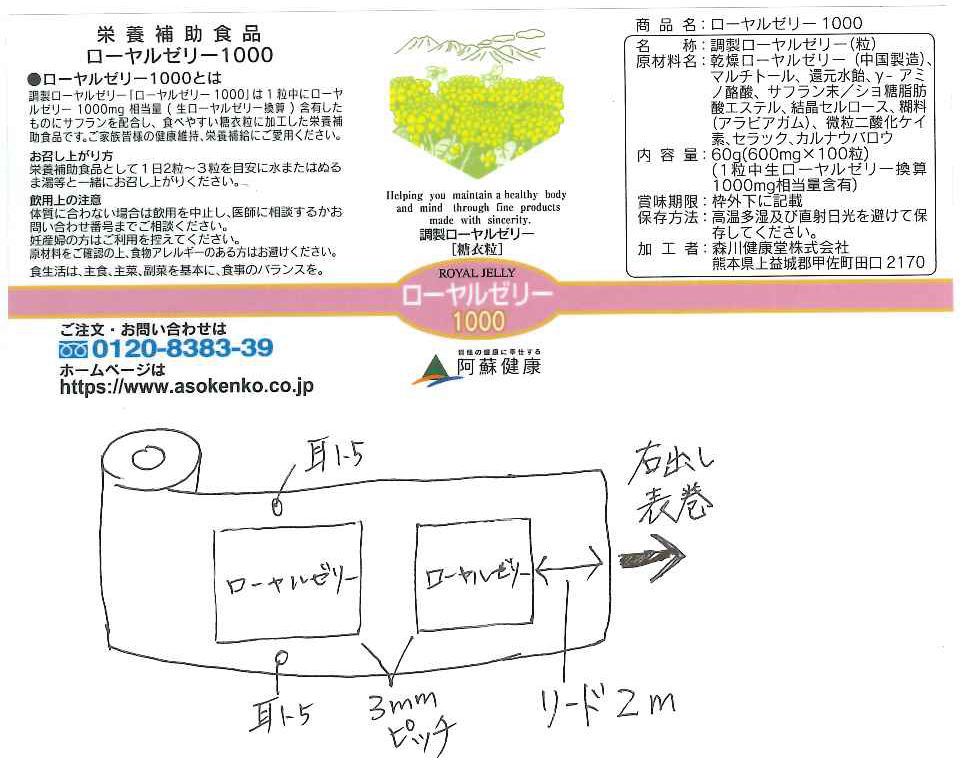 栄養補助食品
ローヤルゼリー1000
●ローヤルゼリー1000とは
調製ローヤルゼリー「ローヤルゼリー 1000」は1粒中にローヤ
ルゼリー 1000mg 相当量 ( 生ローヤルゼリー換算 ) 含有した
ものにサフランを配合し、食べやすい糖衣粒に加工した栄養補
助食品です。ご家族皆様の健康維持、栄養補給にご愛用ください。
お召し上がり方
栄養補助食品として1日2粒～3粒を目安に水またはぬる
ま湯等と一緒にお召し上がりください。
飲用上の注意
体質に合わない場合は飲用を中止し、医師に相談するかお
問い合わせ番号までご相談ください。
妊産婦の方はご利用を控えてください。
原材料をご確認の上、食物アレルギーのある方はお避けください。
食生活は、主食、主菜、副菜を基本に、食事のバランスを。
Helping you maintain a healthy body
and mind through fine products
made with sincerity.
調製ローヤルゼリー
[糖衣粒]
ROYAL JELLY
ローヤルゼリー
1000
商品名：ローヤルゼリー 1000
名称：調製ローヤルゼリー（粒）
原材料名：乾燥ローヤルゼリー（中国製造）、
マルチトール、還元水飴、γ-アミ
ノ酪酸、サフラン末／ショ糖脂肪
酸エステル、結晶セルロース、糊料
（アラビアガム）、微粒二酸化ケイ
素、セラック、カルナウバロウ
内容量：60g(600mg×100粒)
(1粒中生ローヤルゼリー換算
1000mg相当量含有)
賞味期限：枠外下に記載
保存方法：高温多湿及び直射日光を避けて保
存してください。
加工者：森川健康堂株式会社
熊本県上益城郡甲佐町田口2170
ご注文・お問い合わせは
0120-8383-39
ホームページは
https://www.asokenko.co.jp
皆様の健康に奉仕する
阿蘇健康
耳1.5
右出し
表巻
ローヤルゼリー
ローヤルゼリー
耳1.5
3mm
ピッチ
リード2m